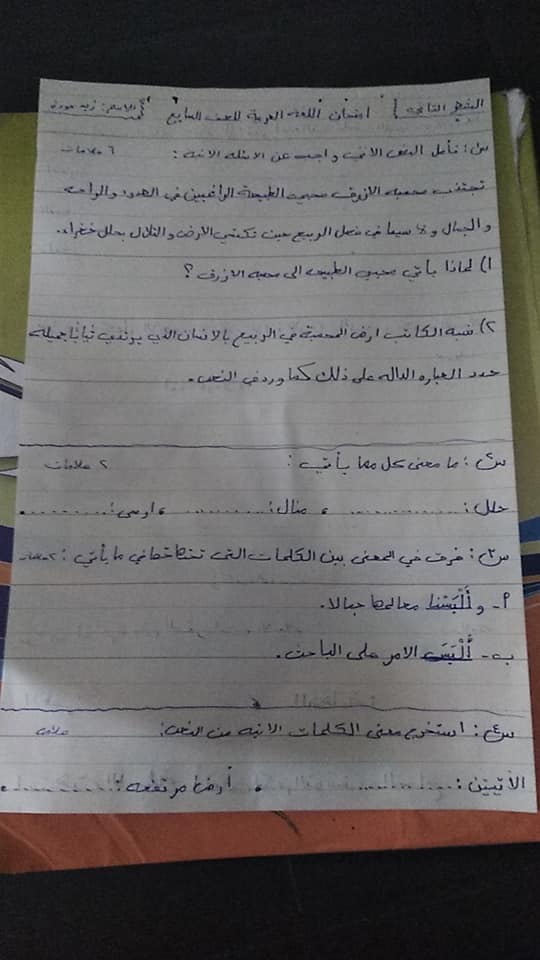 امتحان اللغة العربية للصف السابع الاسم:
س١: تأمل النص الاتي واجب عن الاسئله الاتيه: ٦ علامات
تجتذب محميه الازرق محبي الطبيعة الراغبين في الهدوء والراحه
والجمال ولا سيما في فصل الربيع حين تكتسي الارض والتلال بحلل خضراء.
١) لماذا يأتي محبي الطبيعه الى محميه الازرق ؟
٢) شبه الكاتب ارض المحمية في الربيع بالانسان الذي يرتدي ثيابا جميله
حدد العباره الداله على ذلك كما ورد في النص.
س٢: ما معنى كل مما يأتي: ٢ علامات
حلل: ............ ، منال: ............ ، ارسى: ............
س٣: فرق في المعنى بين الكلمات التي تحتها خط في ما يأتي: ٢ علامات
أ- وأَلْبَسَتنا معالمها جمالا.
ب- أُلْبَسَ الامر على الباحث.
س٤: استخرج معنى الكلمات الاتيه من النص: علامه
الآتيين: ............ ، أرضا مرتفعه: ............